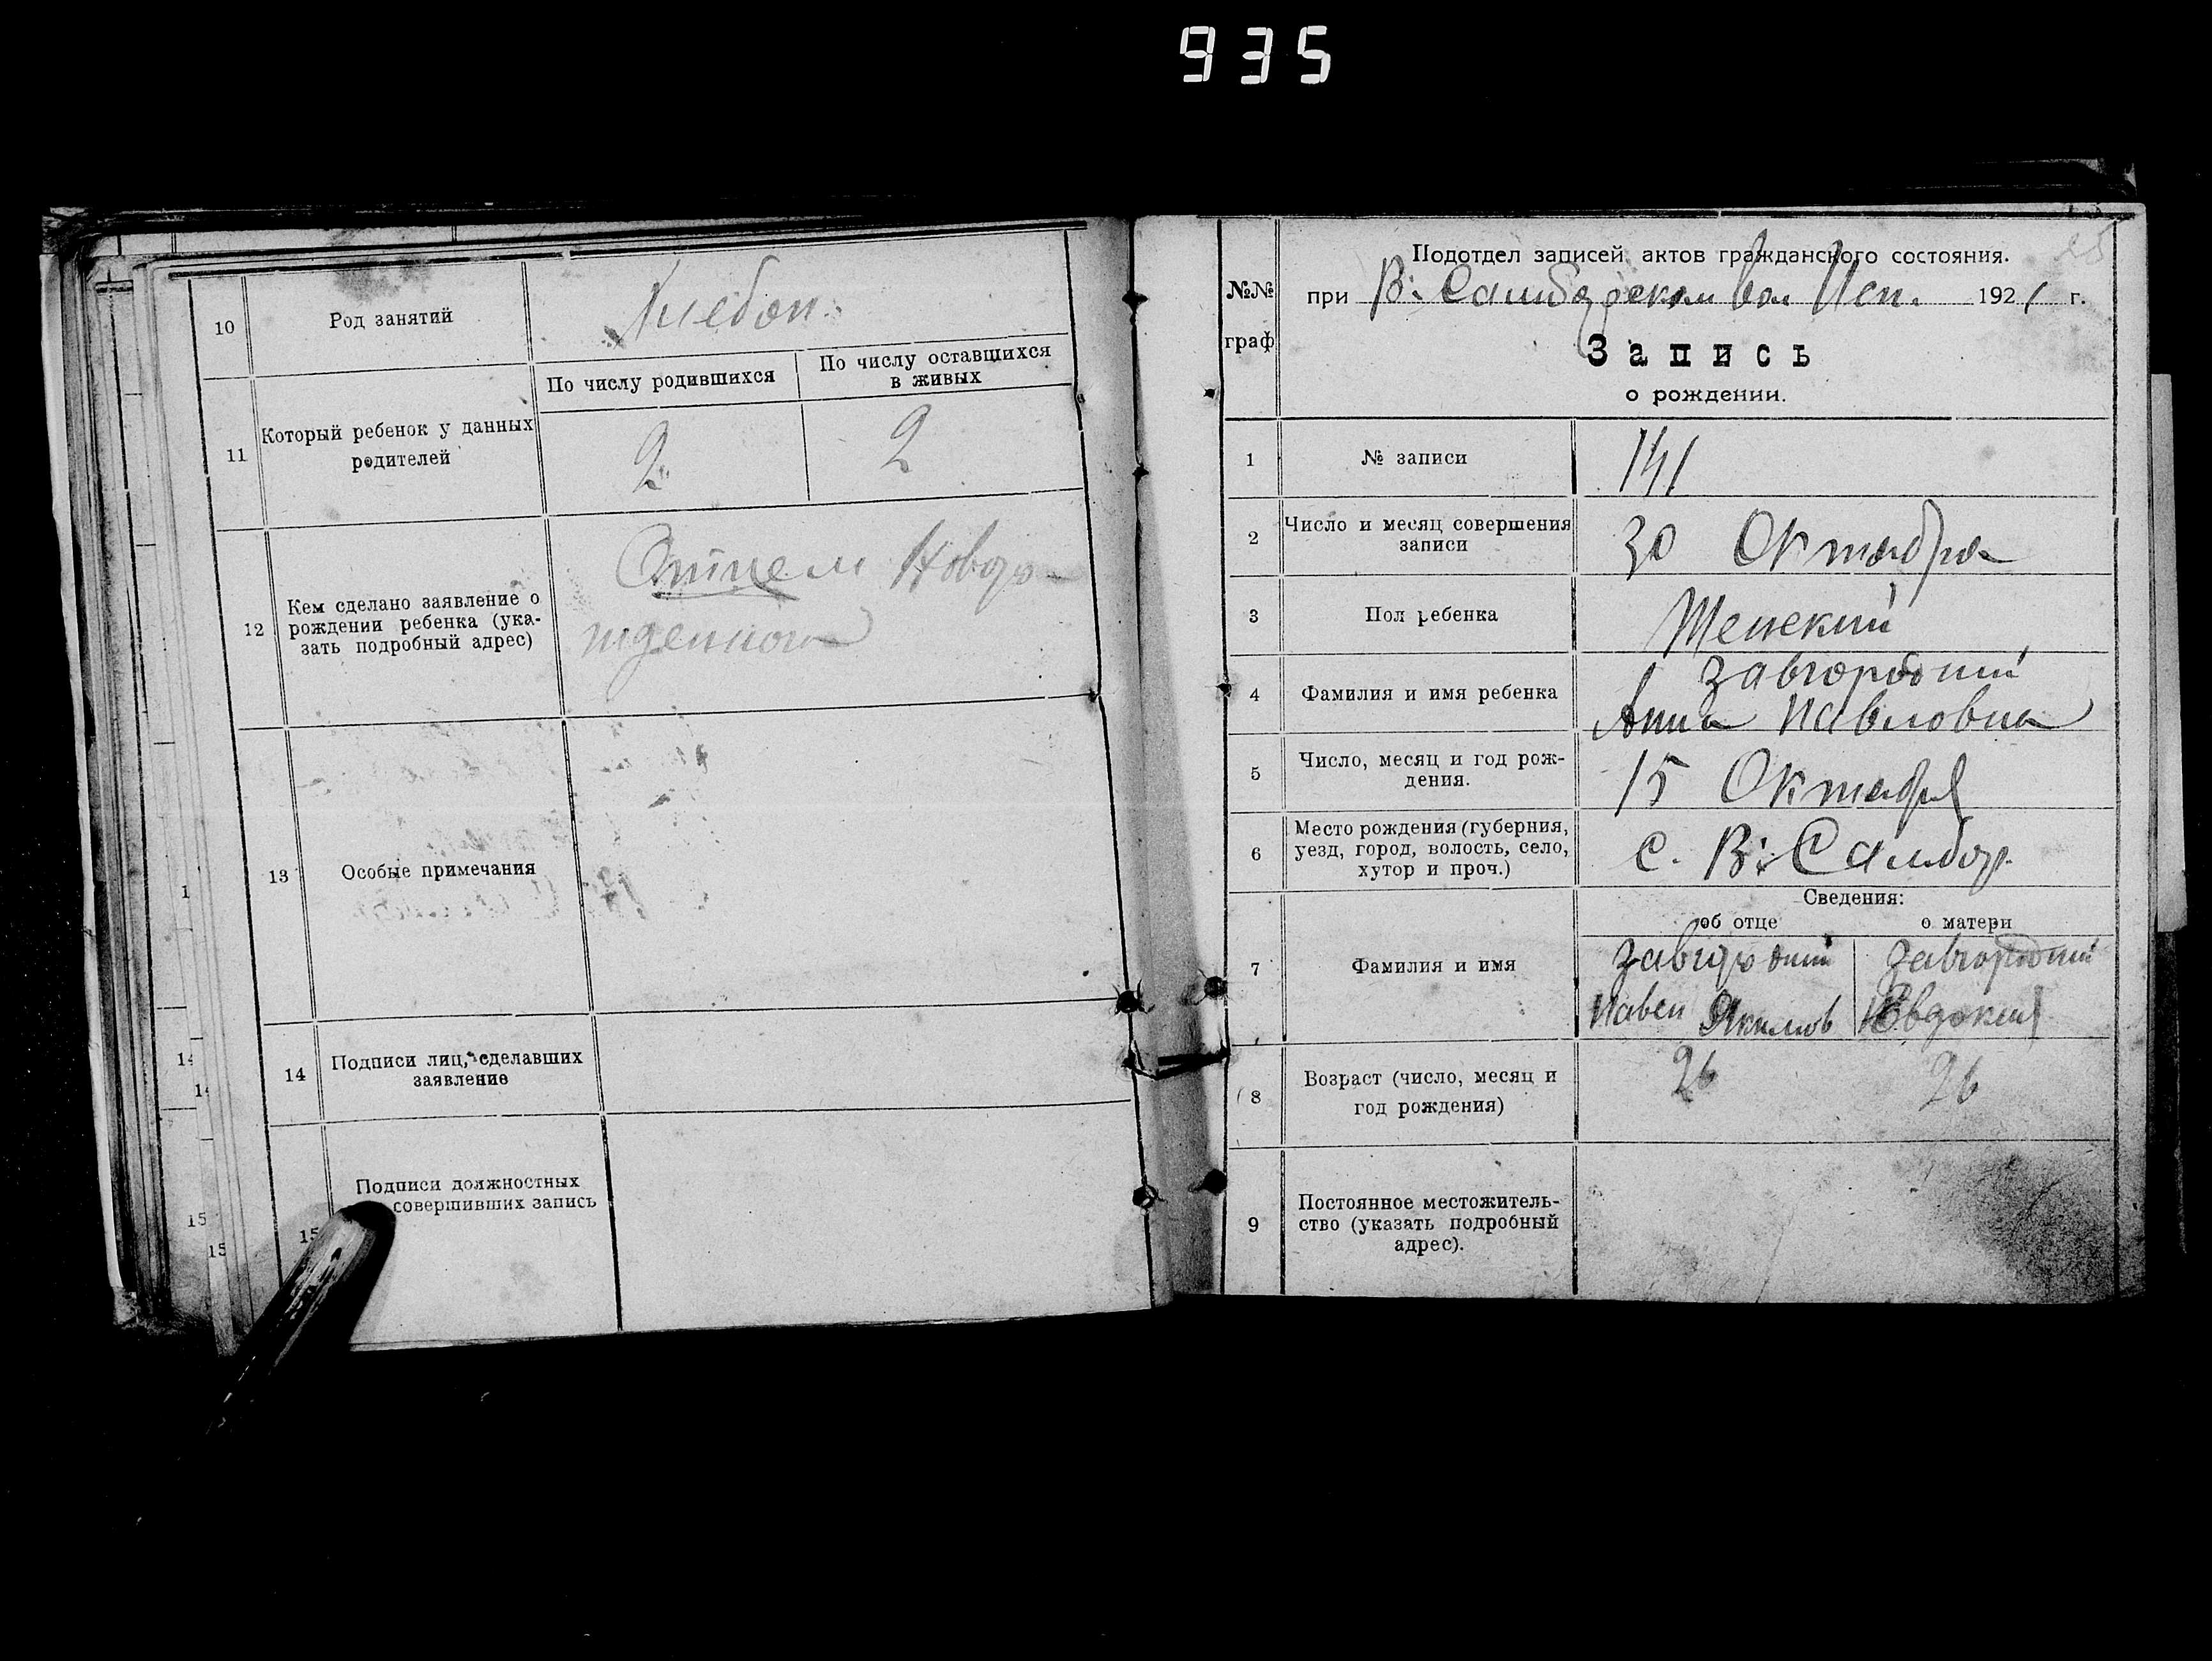 935
10
Род занятий
Хлебоп.
11
Который ребенок у данных
родителей
По числу родившихся
По числу оставшихся
в живых
2
2
12
Кем сделано заявление о
рождении ребенка (ука-
зать подробный адрес)
Отцем Новоро-
жденного
13
Особые примечания
14
Подписи лиц, сделавших
заявление
15
Подписи должностных
совершивших запись
1
14
14
15
15
25
№№
граф
Подотдел записей актов гражданского состояния.
при В. Самборском вол Исп. 1921 г.
Запись
о рождении.
1
№ записи
141
2
Число и месяц совершения
записи
30 Октября
3
Пол ребенка
Женский
4
Фамилия и имя ребенка
Завгородний
Анна Павловна
5
Число, месяц и год рож-
дения.
15 Октября
6
Место рождения (губерния,
уезд, город, волость, село,
хутор и проч.)
с. В. Самбор
Сведения:
об отце
о матери
7
Фамилия и имя
Завгородний
Павел Якимов
Завгородний
Евдокия
8
Возраст (число, месяц и
год рождения)
26
26
9
Постоянное местожитель-
ство (указать подробный
адрес).